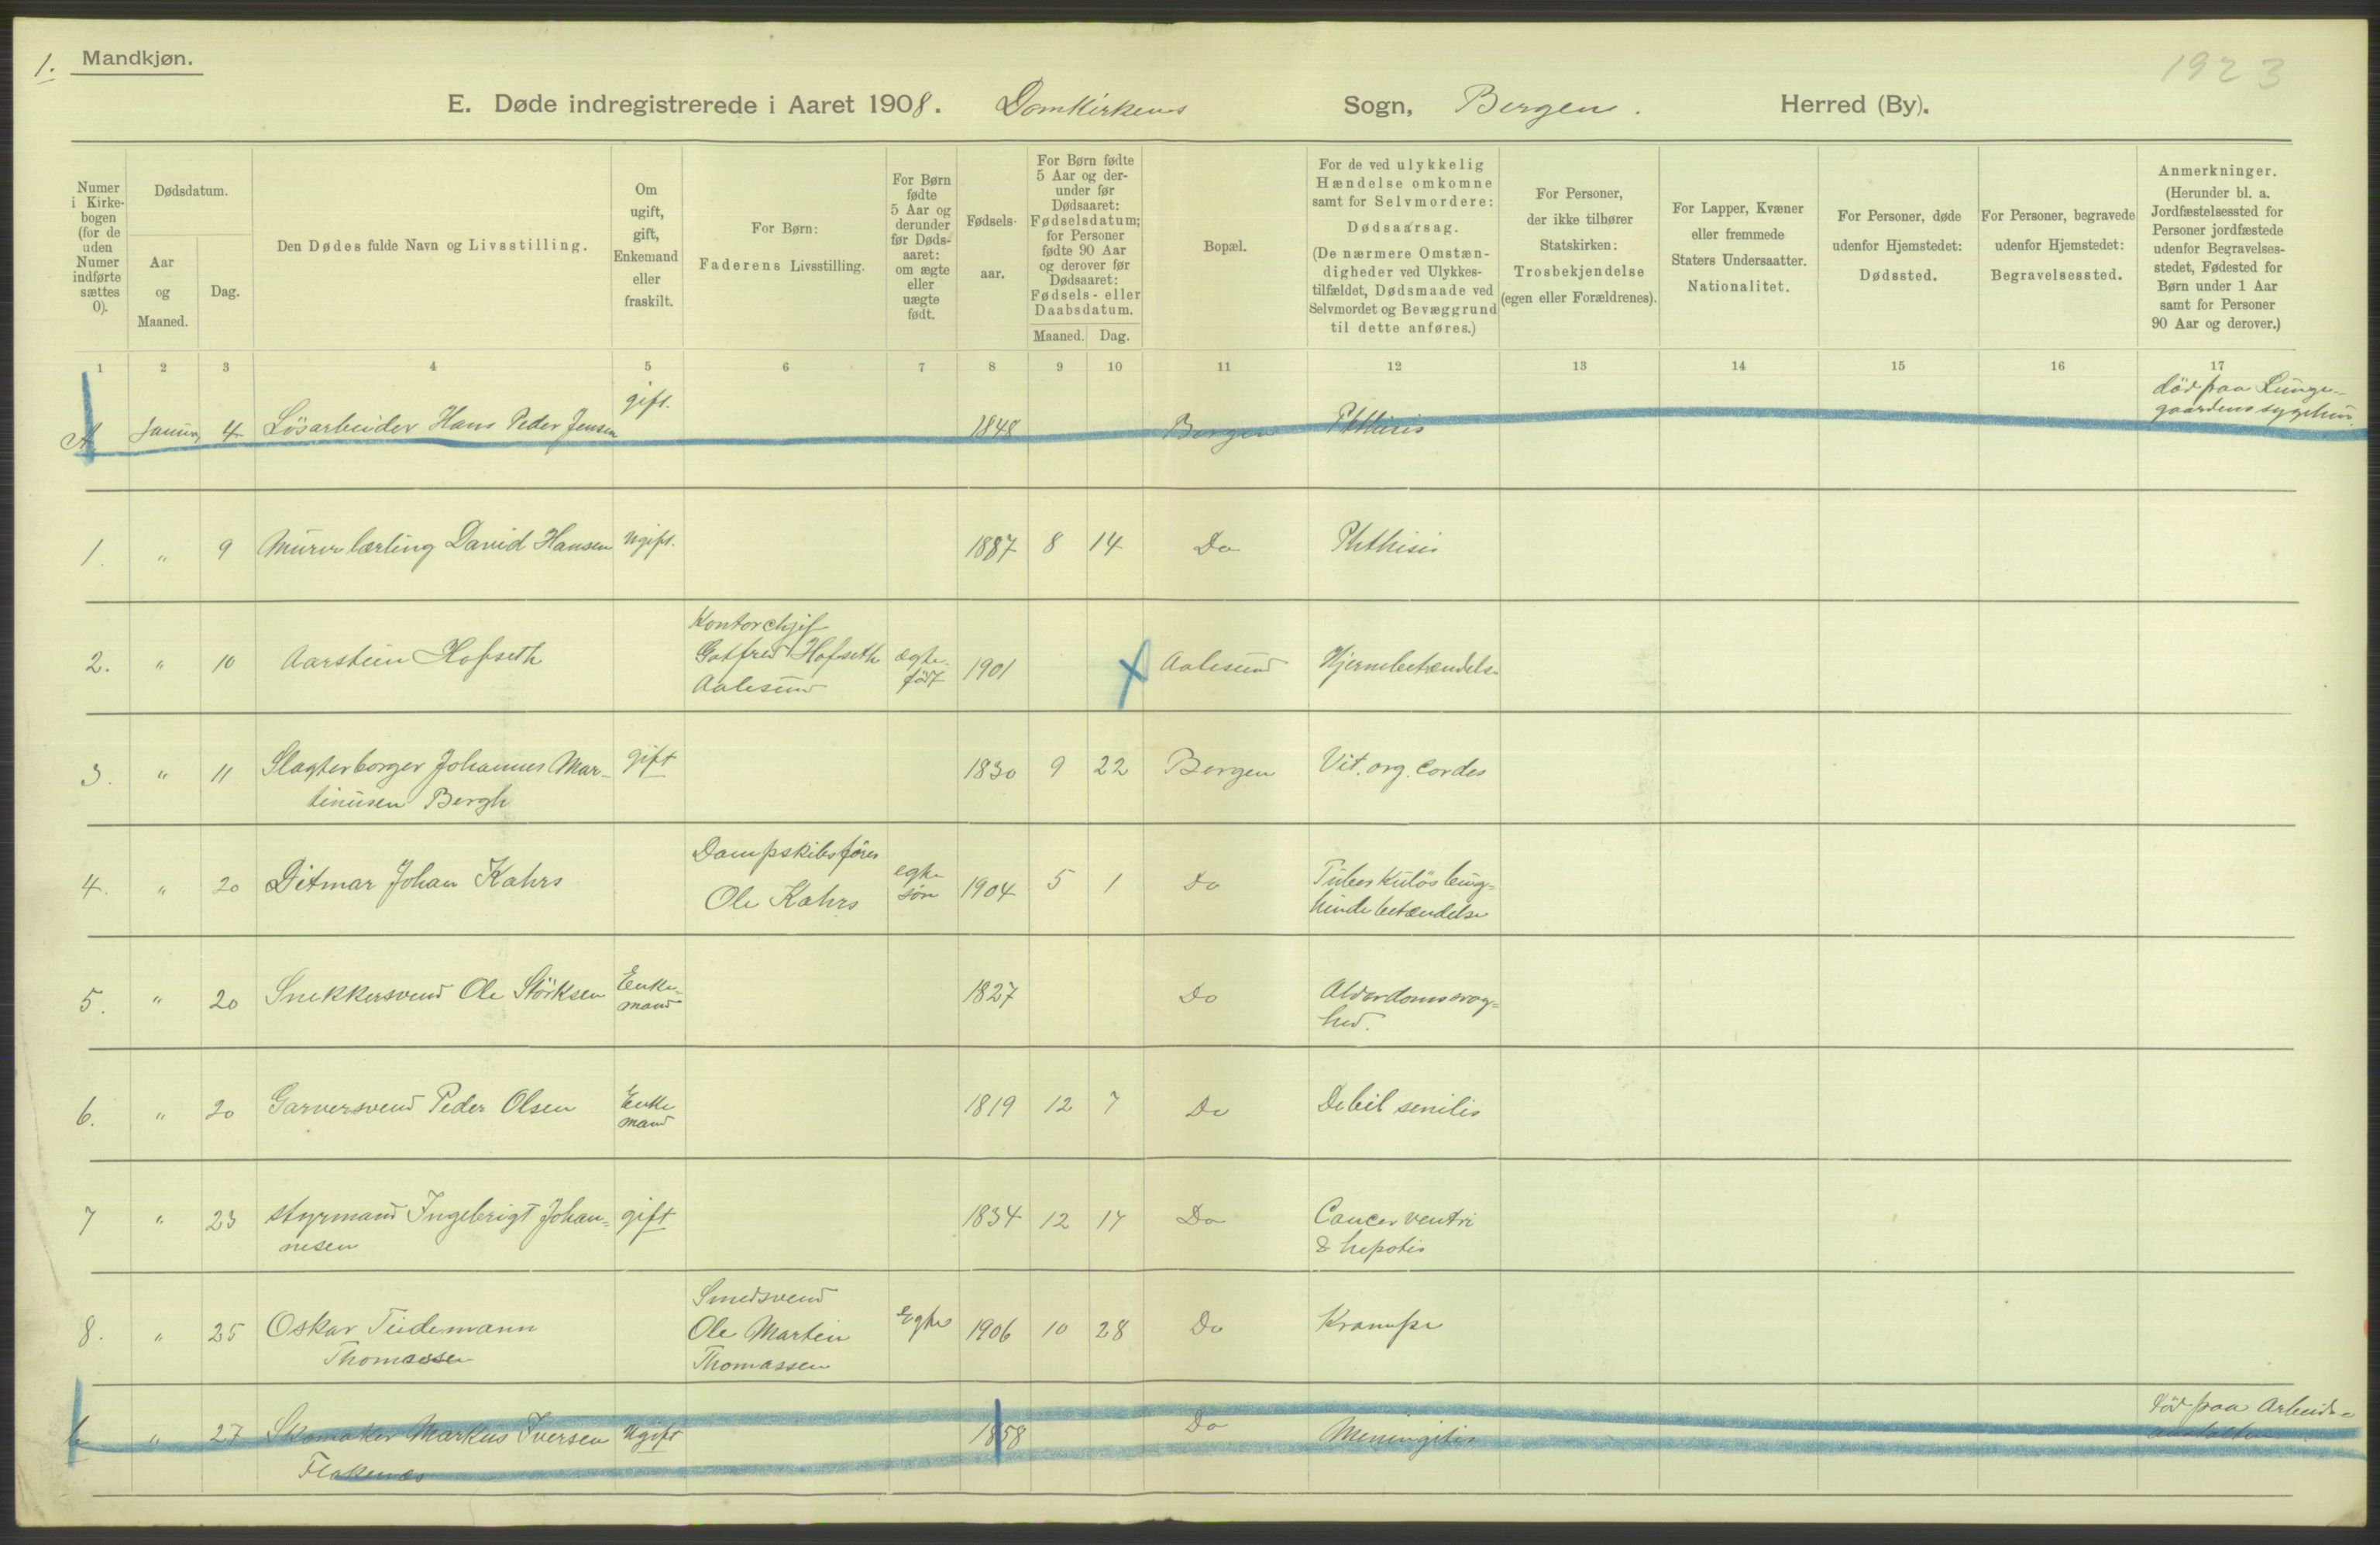 1. Mandkjøn.
1923
E. Døde indregistrerede i Aaret 1908. Domkirkens Sogn, Bergen. Herred (By).
Numer i Kirkebogen (for de uden Numer indførte sættes 0).
Dødsdatum.
Aar og Maaned.
Dag.
Den Dødes fulde Navn og Livsstilling.
Om ugift, gift, Enkemand eller fraskilt.
For Børn: Faderens Livsstilling.
For Børn fødte 5 Aar og derunder før Dødsaaret: om ægte eller uægte født.
Fødselsaar.
For Børn fødte 5 Aar og derunder før Dødsaaret: Fødselsdatum; for Personer fødte 90 Aar og derover før Dødsaaret: Fødsels- eller Daabsdatum.
Maaned. Dag.
Bopæl.
For de ved ulykkelig Hændelse omkomne samt for Selvmordere: Dødsaarsag. (De nærmere Omstændigheder ved Ulykkestilfældet, Dødsmaade ved Selvmordet og Bevæggrund til dette anføres.)
For Personer, der ikke tilhører Statskirken: Trosbekjendelse (egen eller Forældrenes).
For Lapper, Kvæner eller fremmede Staters Undersaatter. Nationalitet.
For Personer, døde udenfor Hjemstedet: Dødssted.
For Personer, begravede udenfor Hjemstedet: Begravelsessted.
Anmerkninger. (Herunder bl. a. Jordfæstelsessted for Personer jordfæstede udenfor Begravelsesstedet, Fødested for Børn under 1 Aar samt for Personer 90 Aar og derover.)
1 2 3 4 5 6 7 8 9 10 11 12 13 14 15 16 17
Januar 4 Løsarbeider Hans Peder Jensen gift. 1848 Bergen Phthisis død paa Lunge-
gaardens sygehus.
1. " 9 Murerlærling David Hansen Ugift. 1887 8 14 Do Phthisis
Kontorchef
2. " 10 Aarstein Hofseth Gotfred Hofseth ægte 1901 Aalesund Hjernebetændelse
Aalesund født
3. " 11 Slagterborger Johannes Mar- gift 1830 9 22 Bergen Vit. org. Cordes
tinusen Bergh
Dampskibsfører
4. " 20 Ditmar Johan Kahrs Ole Kahrs egte 1904 5 1 Do Tuberkuløs
søn hindebetændelse
5. " 20 Snekkersvend Ole Størksen Enke- 1827 Do Alderdomssvag=
mand hed.
6. " 20 Garversvend Peder Olsen Enke 1819 12 7 Do Debil senilis
mand
7 " 23 styrmand Ingebrigt Johan= gift 1834 12 17 Do Cancer ventri
nesen & hepatis
Smedsvend
8. " 25 Oskar Tidemann Ole Martin Egte 1906 10 28 Do Krampe
Thomassen Thomassen
" 27 Skomaker Markus Iversen Ugift 1858 Do Meningitis død paa Arbeids-
Flakenæs anstalten